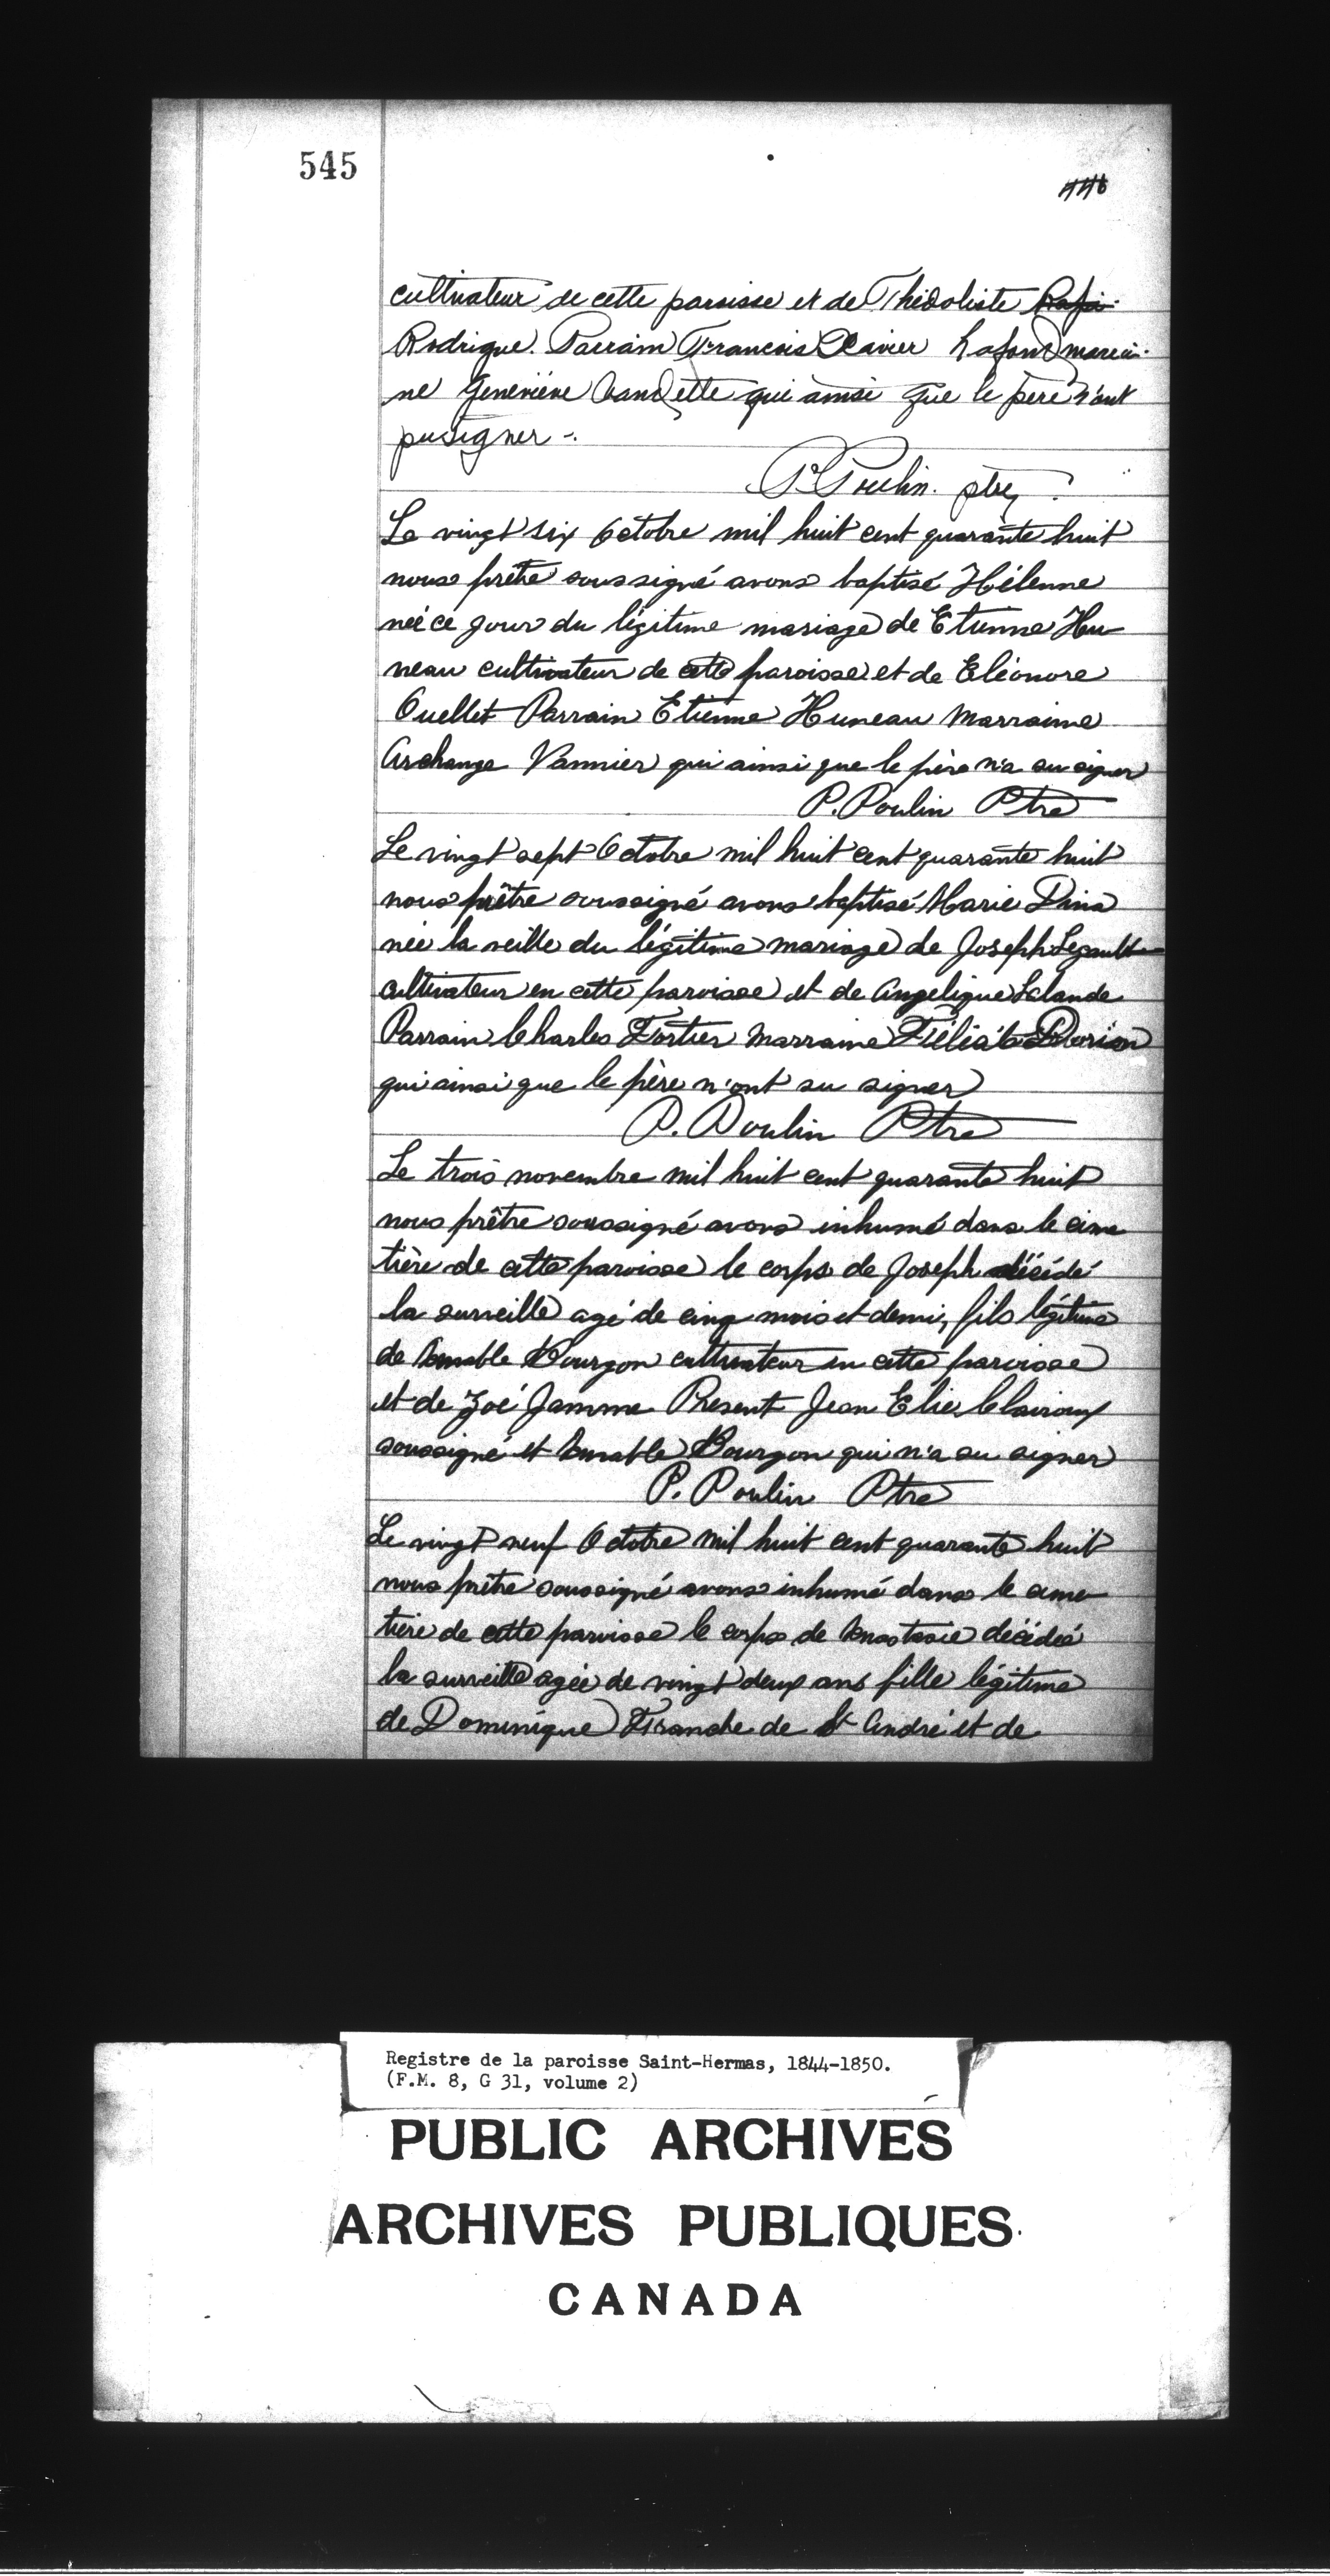 545
446
cultivateur de cette paroisse et de Thédoliste
Rodrigue. Parrain Francois Xavier Lafond marai-
ne Geneviéve Vandette qui ainsi que le père n'ont
pu signer -.
P. Poulin. ptre
Le vingt six Octobre mil huit cent quarante huit
nous prêtre soussigné avons baptisé Hélenne
née ce jour du légitime mariage de Etienne Hu
neau cultivateur de cette paroisse et de Eléonore
Ouellet Parrain Etienne Huneau Marraine
Archange Vannier qui ainsi que le père n'a su signer
P. Poulin Ptre
Le vingt sept Octobre mil huit cent quarante huit
nous prêtre soussigné avons baptisé Marie Dina
née la veille du légitime mariage de Joseph Legault
cultivateur en cette paroisse et de Angelique Lalande
Parrain Charles Fortier Marraine Dorion
qui ainsi que le père n'ont su signer
P. Poulin Ptre
Le trois novembre mil huit cent quarante huit
nous prêtre soussigné avons inhumé dans le cime
tière de cette paroisse le corps de Joseph décédé
la surveille agé de cinq mois et demi, fils légitime
de Amable Bourgon cultivateur en cette paroisse
et de Zoé Jamme Présent Jean Elie Clairoux
soussigné et Amable Bourgon qui n'a su signer
P. Poulin Ptre
Le vingt neuf Octobre mil huit cent quarante huit
nous prêtre soussigné avons inhumé dans le cime
tière de cette paroisse le corps de Anastasie décédée
la surveille agée de vingt deux ans fille légitime
de Dominique Franche de St André et de
Registre de la paroisse Saint-Hermas, 1844-1850.
(F.M. 8, G 31, volume 2)
PUBLIC ARCHIVES
ARCHIVES PUBLIQUES
CANADA